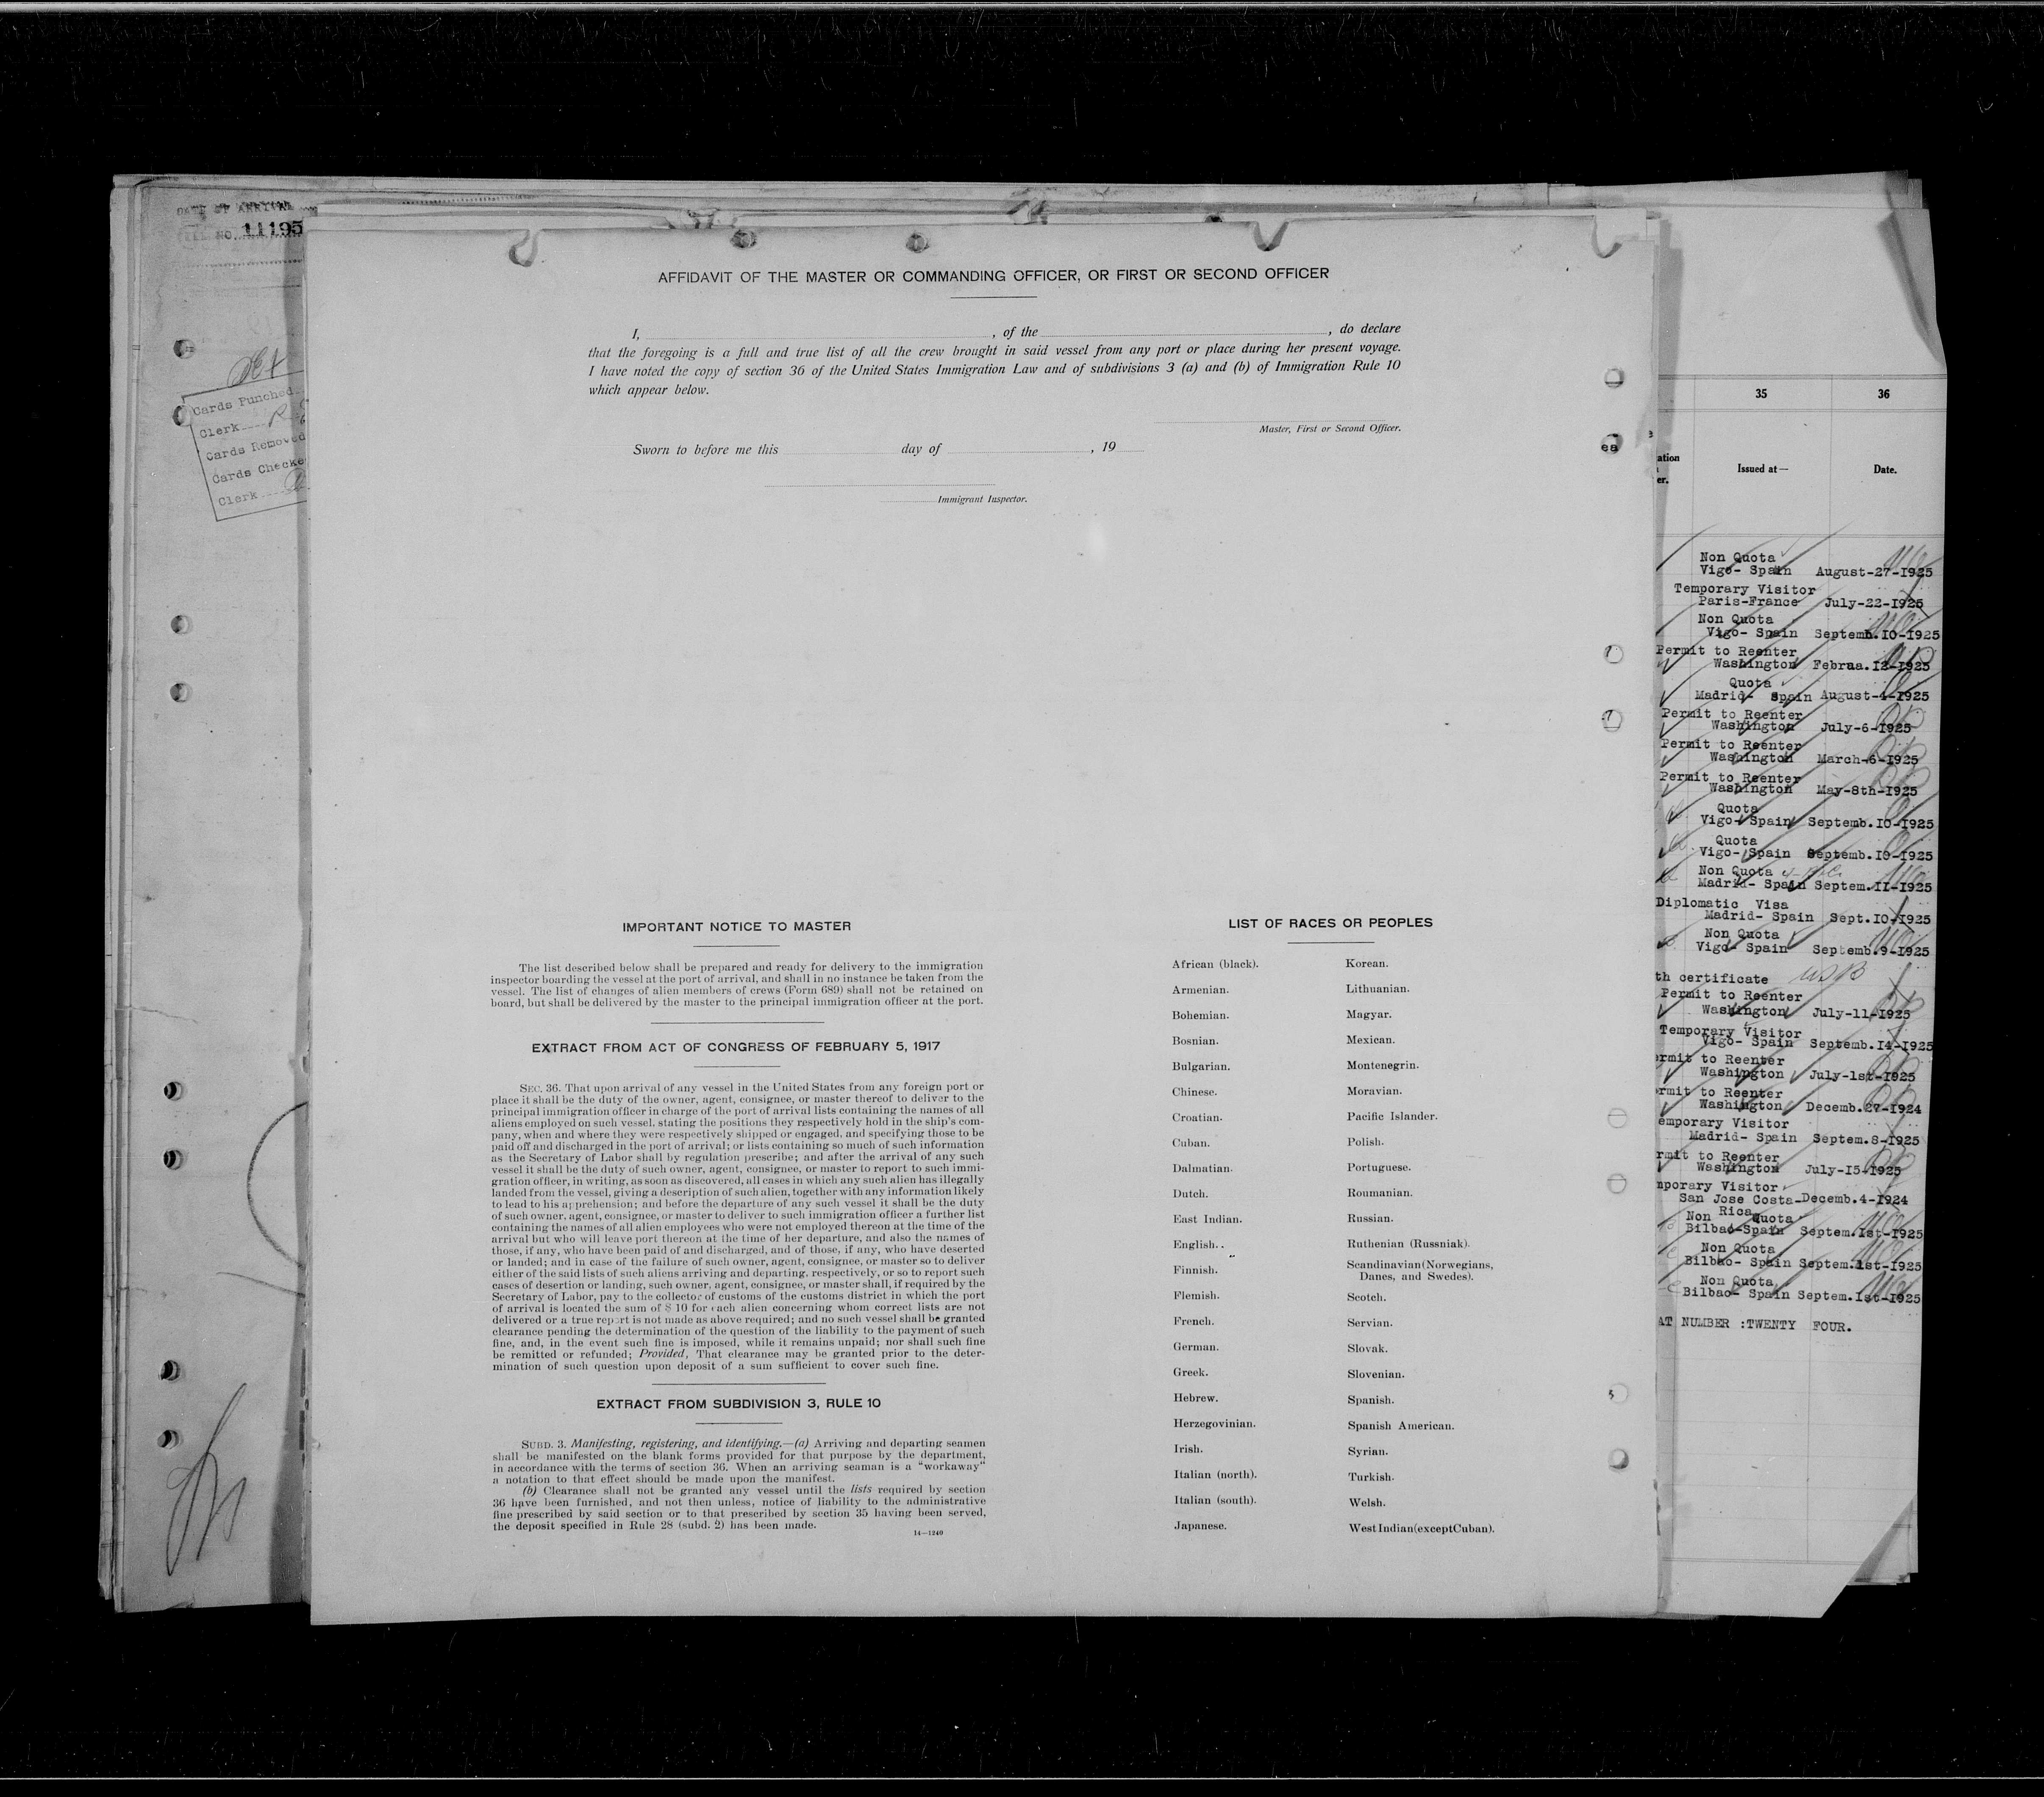 DATE OF ARRIVAL
NO. 11195
Cards Punched
Clerk
Cards Removed
Cards Checke
Clerk
AFFIDAVIT OF THE MASTER OR COMMANDING OFFICER, OR FIRST OR SECOND OFFICER
I, , of the , do declare
that the foregoing is a full and true list of all the crew brought in said vessel from any port or place during her present voyage.
I have noted the copy of section 36 of the United States Immigration Law and of subdivisions 3 (a) and (b) of Immigration Rule 10
which appear below.
Master, First or Second Officer.
Sworn to before me this day of , 19
Immigrant Inspector.
IMPORTANT NOTICE TO MASTER
The list described below shall be prepared and ready for delivery to the immigration
inspector boarding the vessel at the port of arrival, and shall in no instance be taken from the
vessel. The list of changes of alien members of crews (Form 689) shall not be retained on
board, but shall be delivered by the master to the principal immigration officer at the port.
EXTRACT FROM ACT OF CONGRESS OF FEBRUARY 5, 1917
SEC. 36. That upon arrival of any vessel in the United States from any foreign port or
place it shall be the duty of the owner, agent, consignee, or master thereof to deliver to the
principal immigration officer in charge of the port of arrival lists containing the names of all
aliens employed on such vessel, stating the positions they respectively hold in the ship's com-
pany, when and where they were respectively shipped or engaged, and specifying those to be
paid off and discharged in the port of arrival; or lists containing so much of such information
as the Secretary of Labor shall by regulation prescribe; and after the arrival of any such
vessel it shall be the duty of such owner, agent, consignee, or master to report to such immi-
gration officer, in writing, as soon as discovered, all cases in which any such alien has illegally
landed from the vessel, giving a description of such alien, together with any information likely
to lead to his apprehension; and before the departure of any such vessel it shall be the duty
of such owner, agent, consignee, or master to deliver to such immigration officer a further list
containing the names of all alien employees who were not employed thereon at the time of the
arrival but who will leave port thereon at the time of her departure, and also the names of
those, if any, who have been paid of and discharged, and of those, if any, who have deserted
or landed; and in case of the failure of such owner, agent, consignee, or master so to deliver
either of the said lists of such aliens arriving and departing, respectively, or so to report such
cases of desertion or landing, such owner, agent, consignee, or master shall, if required by the
Secretary of Labor, pay to the collector of customs of the customs district in which the port
of arrival is located the sum of $ 10 for each alien concerning whom correct lists are not
delivered or a true report is not made as above required; and no such vessel shall be granted
clearance pending the determination of the question of the liability to the payment of such
fine, and, in the event such fine is imposed, while it remains unpaid; nor shall such fine
be remitted or refunded; Provided, That clearance may be granted prior to the deter-
mination of such question upon deposit of a sum sufficient to cover such fine.
EXTRACT FROM SUBDIVISION 3, RULE 10
SUBD. 3. Manifesting, registering, and identifying.—(a) Arriving and departing seamen
shall be manifested on the blank forms provided for that purpose by the department,
in accordance with the terms of section 36. When an arriving seaman is a "workaway"
a notation to that effect should be made upon the manifest.
(b) Clearance shall not be granted any vessel until the lists required by section
36 have been furnished, and not then unless, notice of liability to the administrative
fine prescribed by said section or to that prescribed by section 35 having been served,
the deposit specified in Rule 28 (subd. 2) has been made.
14—1240
LIST OF RACES OR PEOPLES
African (black).
Armenian.
Bohemian.
Bosnian.
Bulgarian.
Chinese.
Croatian.
Cuban.
Dalmatian.
Dutch.
East Indian.
English.
Finnish.
Flemish.
French.
German.
Greek.
Hebrew.
Herzegovinian.
Irish.
Italian (north).
Italian (south).
Japanese.
Korean.
Lithuanian.
Magyar.
Mexican.
Montenegrin.
Moravian.
Pacific Islander.
Polish.
Portuguese.
Roumanian.
Russian.
Ruthenian (Russniak).
Scandinavian (Norwegians,
Danes, and Swedes).
Scotch.
Servian.
Slovak.
Slovenian.
Spanish.
Spanish American.
Syrian.
Turkish.
Welsh.
West Indian (except Cuban).
35 36
ation
er. Issued at— Date.
Non Quota
Vigo- Spain August-27-1925
Temporary Visitor
Paris-France July-22-1925
Non Quota
Vigo- Spain Septemb.10-1925
Permit to Reenter
Washington Februa.12-1925
Quota
Madrid- Spain August-4-1925
Permit to Reenter
Washington July-6-1925
Permit to Reenter
Washington March-6-1925
Permit to Reenter
Washington May-8th-1925
Quota
Vigo-Spain Septemb.10-1925
Quota
Vigo-Spain Septemb.10-1925
Non Quota
Madrid- Spain Septem.11-1925
Diplomatic Visa
Madrid- Spain Sept.10-1925
Non Quota
Vigo- Spain Septemb.9-1925
th certificate
Permit to Reenter
Washington July-11-1925
Temporary Visitor
Vigo- Spain Septemb.14-1925
ermit to Reenter
Washington July-1st-1925
rmit to Reenter
Washington Decemb.27-1924
emporary Visitor
Madrid- Spain Septem.8-1925
rmit to Reenter
Washington July-15-1925
mporary Visitor
San Jose Costa-Decemb.4-1924
Rica
Non Quota
Bilbao-Spain Septem.1st-1925
Non Quota
Bilbao- Spain Septem.1st-1925
Non Quota
Bilbao- Spain Septem.1st-1925
AT NUMBER :TWENTY FOUR.